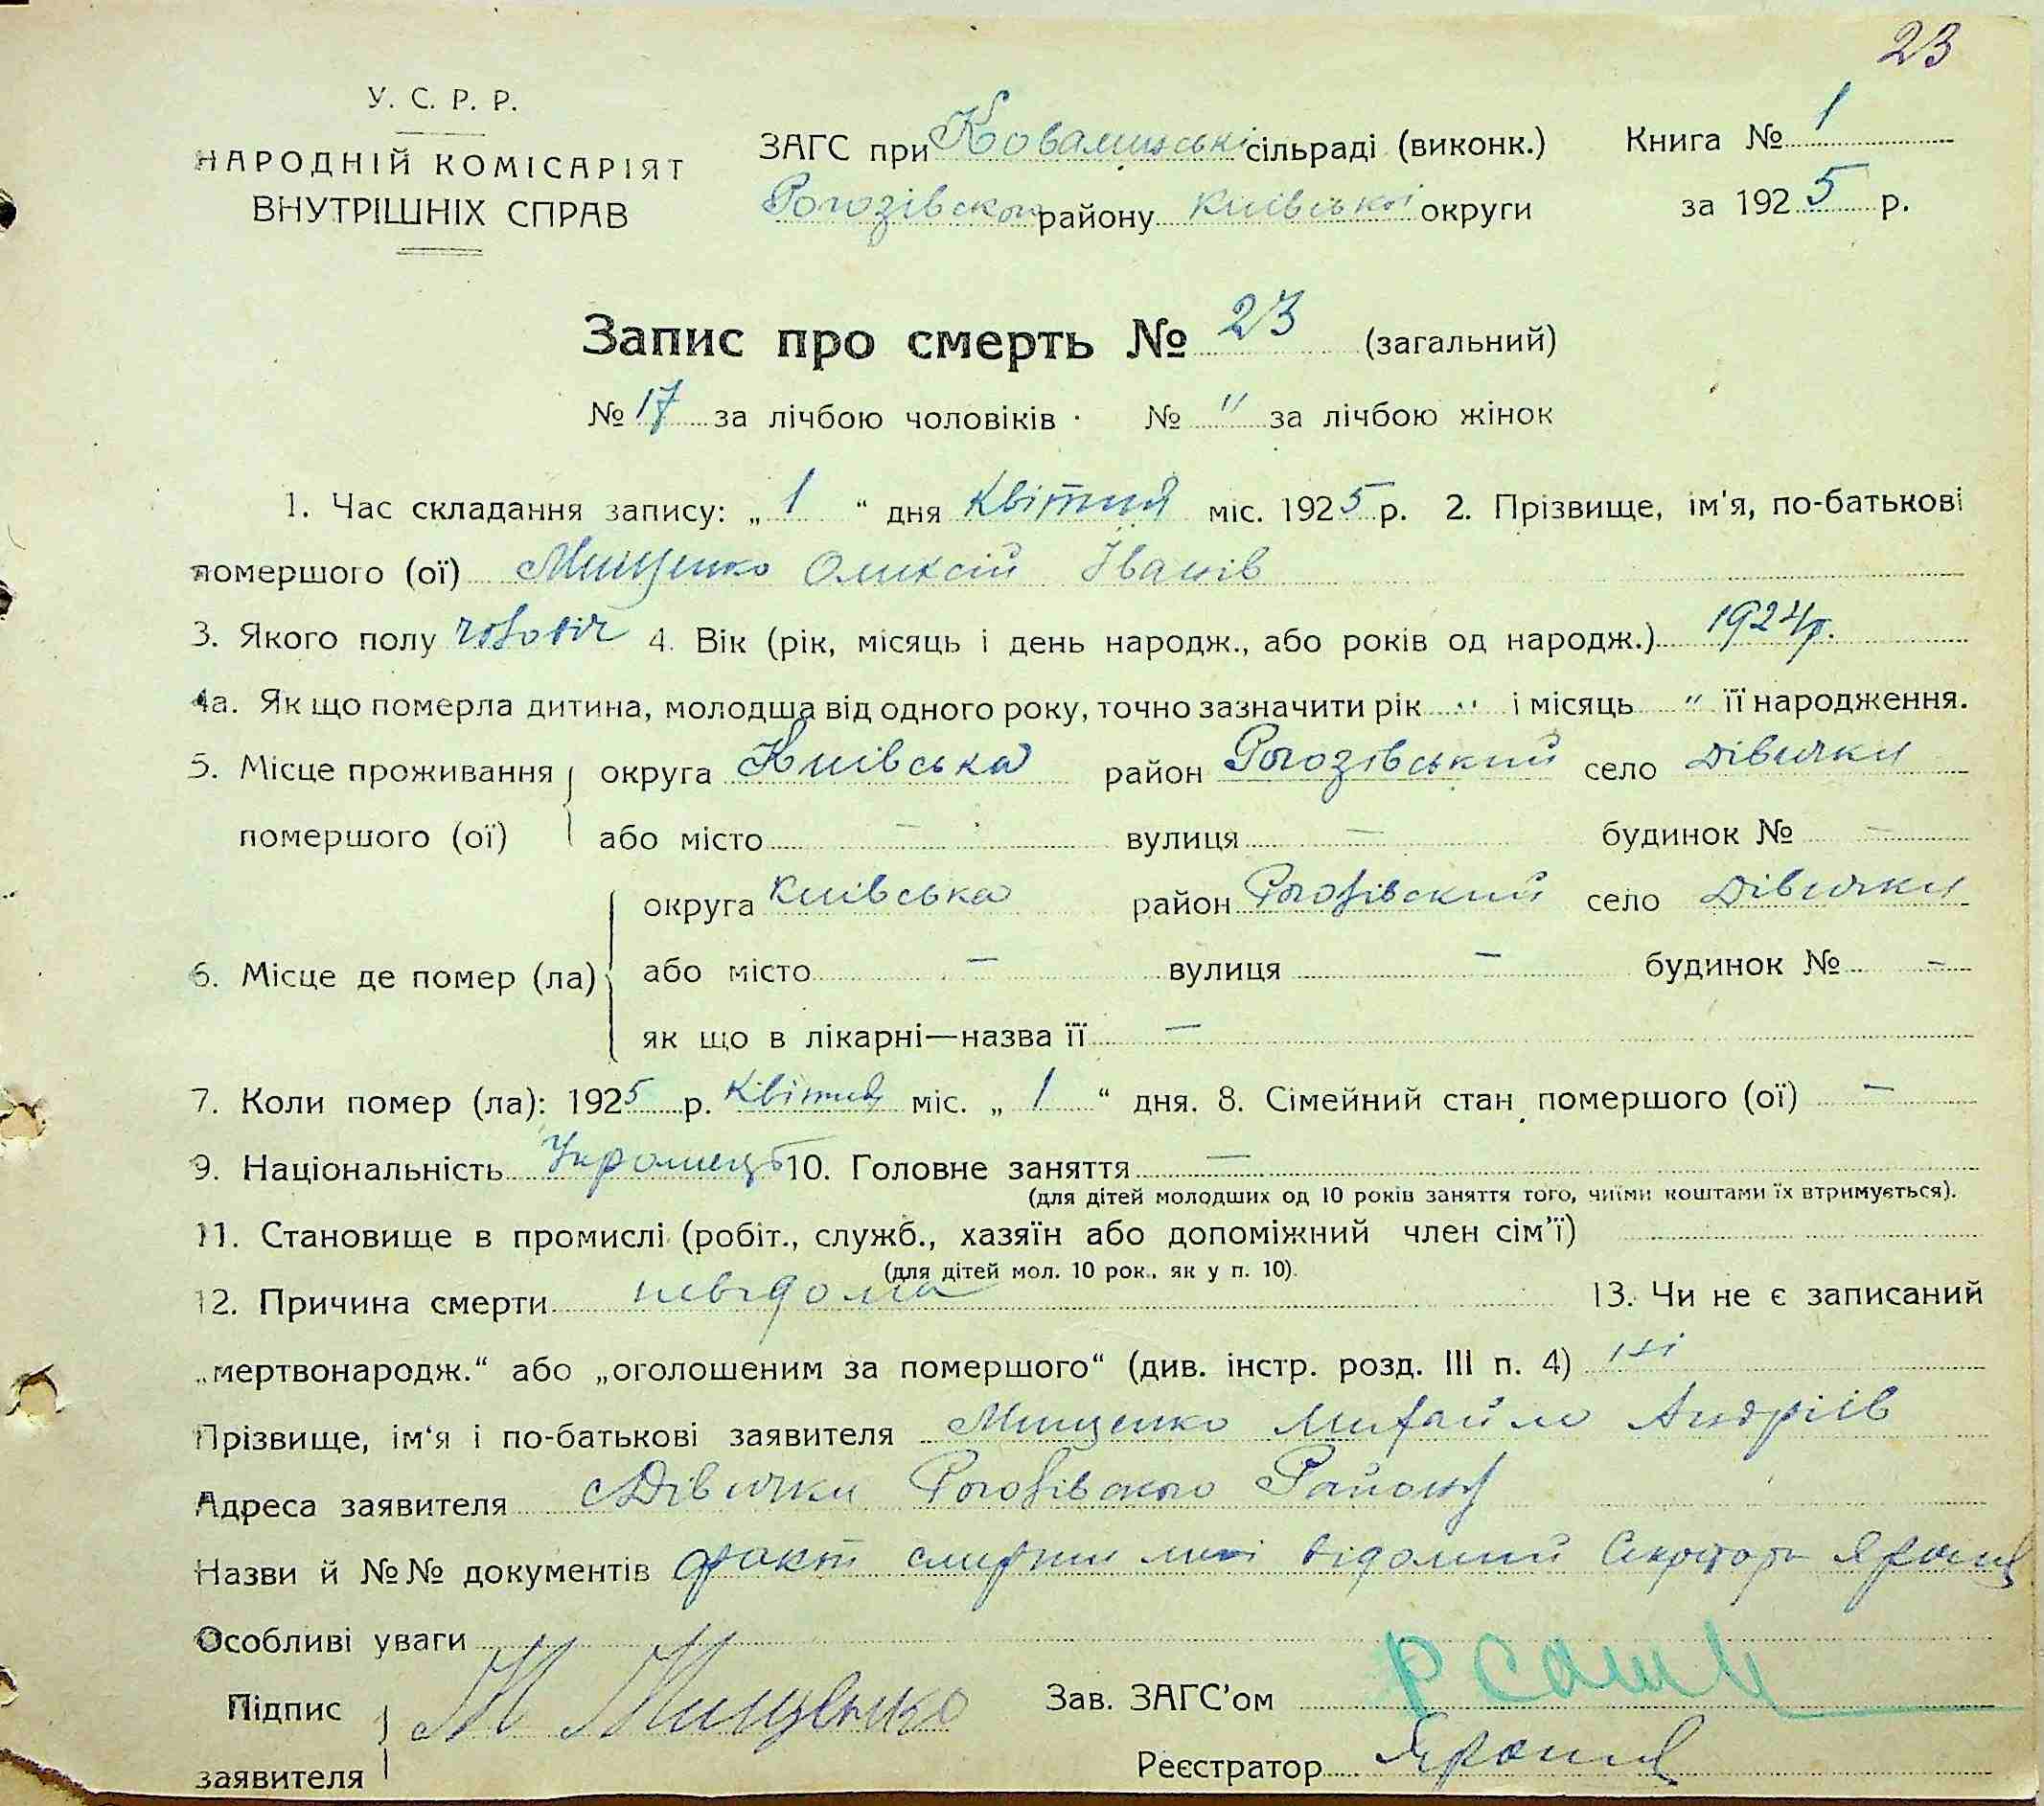 23
У. С. Р. Р.
НАРОДНІЙ КОМІСАРІЯТ
ВНУТРІШНІХ СПРАВ
ЗАГС при Ковалинські сільраді (виконк.)
Рогозівского району Київської округи
Книга № 1
за 1925 р.
Запис про смерть № 23 (загальний)
№ 17 за лічбою чоловіків · № " за лічбою жінок
1. Час складання запису: „ 1 “ дня Квітня міс. 1925 р. 2. Прізвище, ім'я, по-батькові
помершого (ої) Мищенко Олексій Іванів
3. Якого полу чоловіч 4. Вік (рік, місяць і день народж., або років од народж.) 1924р.
4а. Як що померла дитина, молодша від одного року, точно зазначити рік " і місяць " її народження.
5. Місце проживання округа Київська район Рогозівський село Дівички
помершого (ої) або місто — вулиця — будинок № —
округа Київська район Рогозівский село Дівички
6. Місце де помер (ла) або місто — вулиця — будинок № —
як що в лікарні—назва її —
7. Коли помер (ла): 1925 р. Квітня міс. „ 1 “ дня. 8. Сімейний стан помершого (ої) —
9. Національність Украинець 10. Головне заняття —
(для дітей молодших од 10 років заняття того, чиїми коштами їх втримується).
11. Становище в промислі (робіт., служб., хазяїн або допоміжний член сім’ї)
(для дітей мол. 10 рок., як у п. 10).
12. Причина смерти невідома 13. Чи не є записаний
„мертвонародж.“ або „оголошеним за помершого“ (див. інстр. розд. III п. 4) ні
Прізвище, ім‘я і по-батькові заявителя Мищенко Михайло Андріїв
Адреса заявителя с Дівички Рогозівского Району
Назви й №№ документів факт смерти мені відомий Секретарь
Особливі уваги
Підпис
заявителя М Мищенко
Зав. ЗАГС’ом
Реєстратор